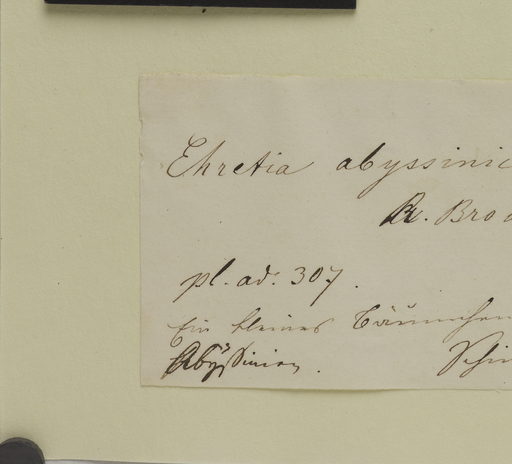 Ehretia abyssinic
R. Bro
pl. ad. 307.
Ein kleines Bäumchen
Abÿssinien.
Schim